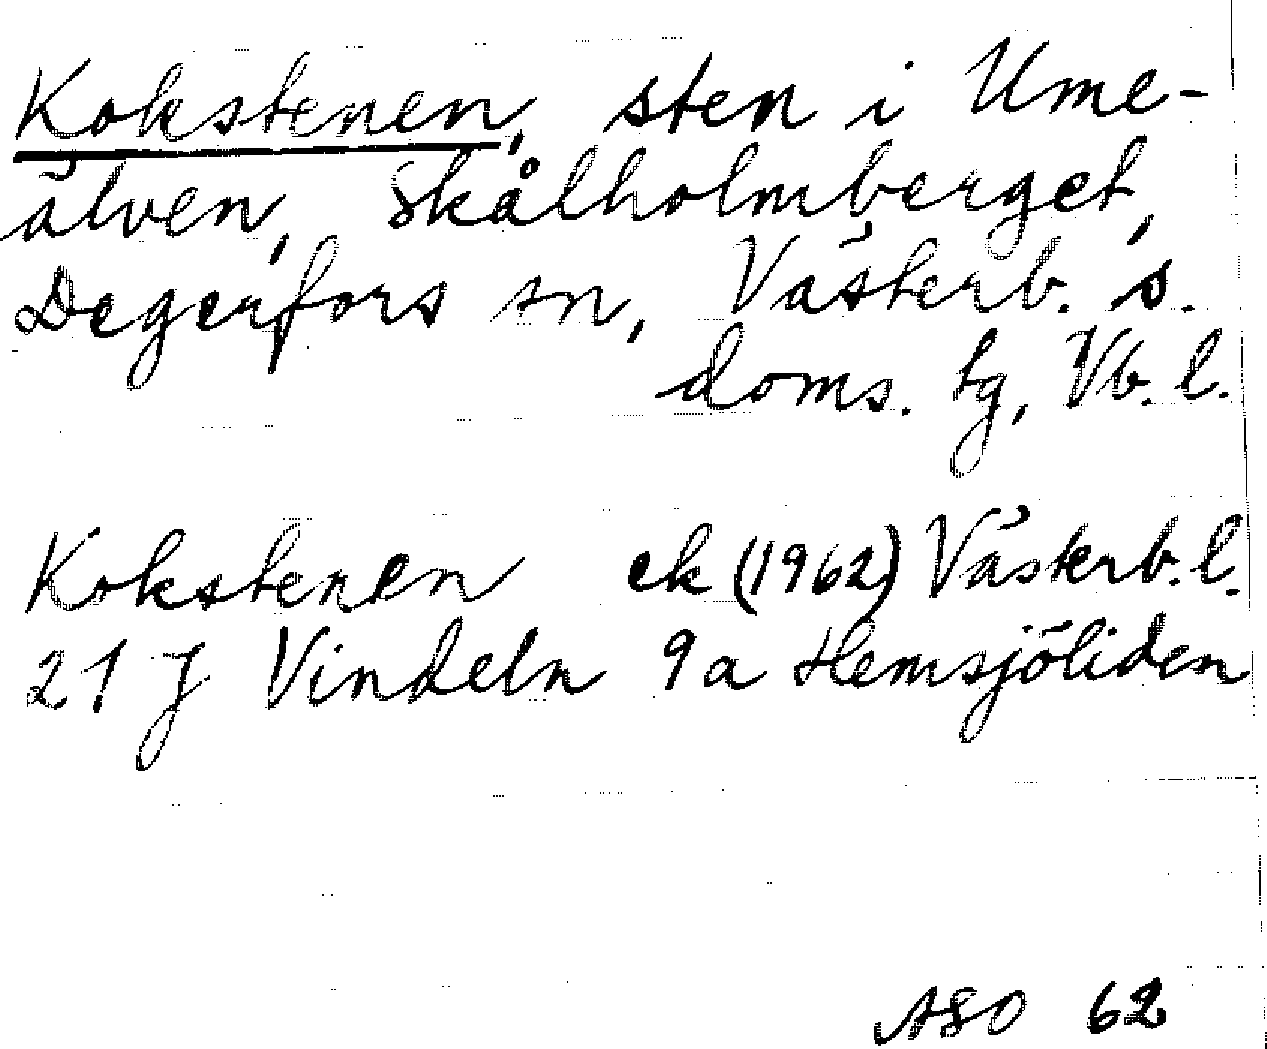 Kokstenen, sten i Ume-
älven, Skålholmberget,
Degerfors sn, Västerb. s.
doms. tg, Vb. l.
Kokstenen ek (1962) Västerb. l.
21 J Vindeln 9a Hemsjöliden
ASO 62